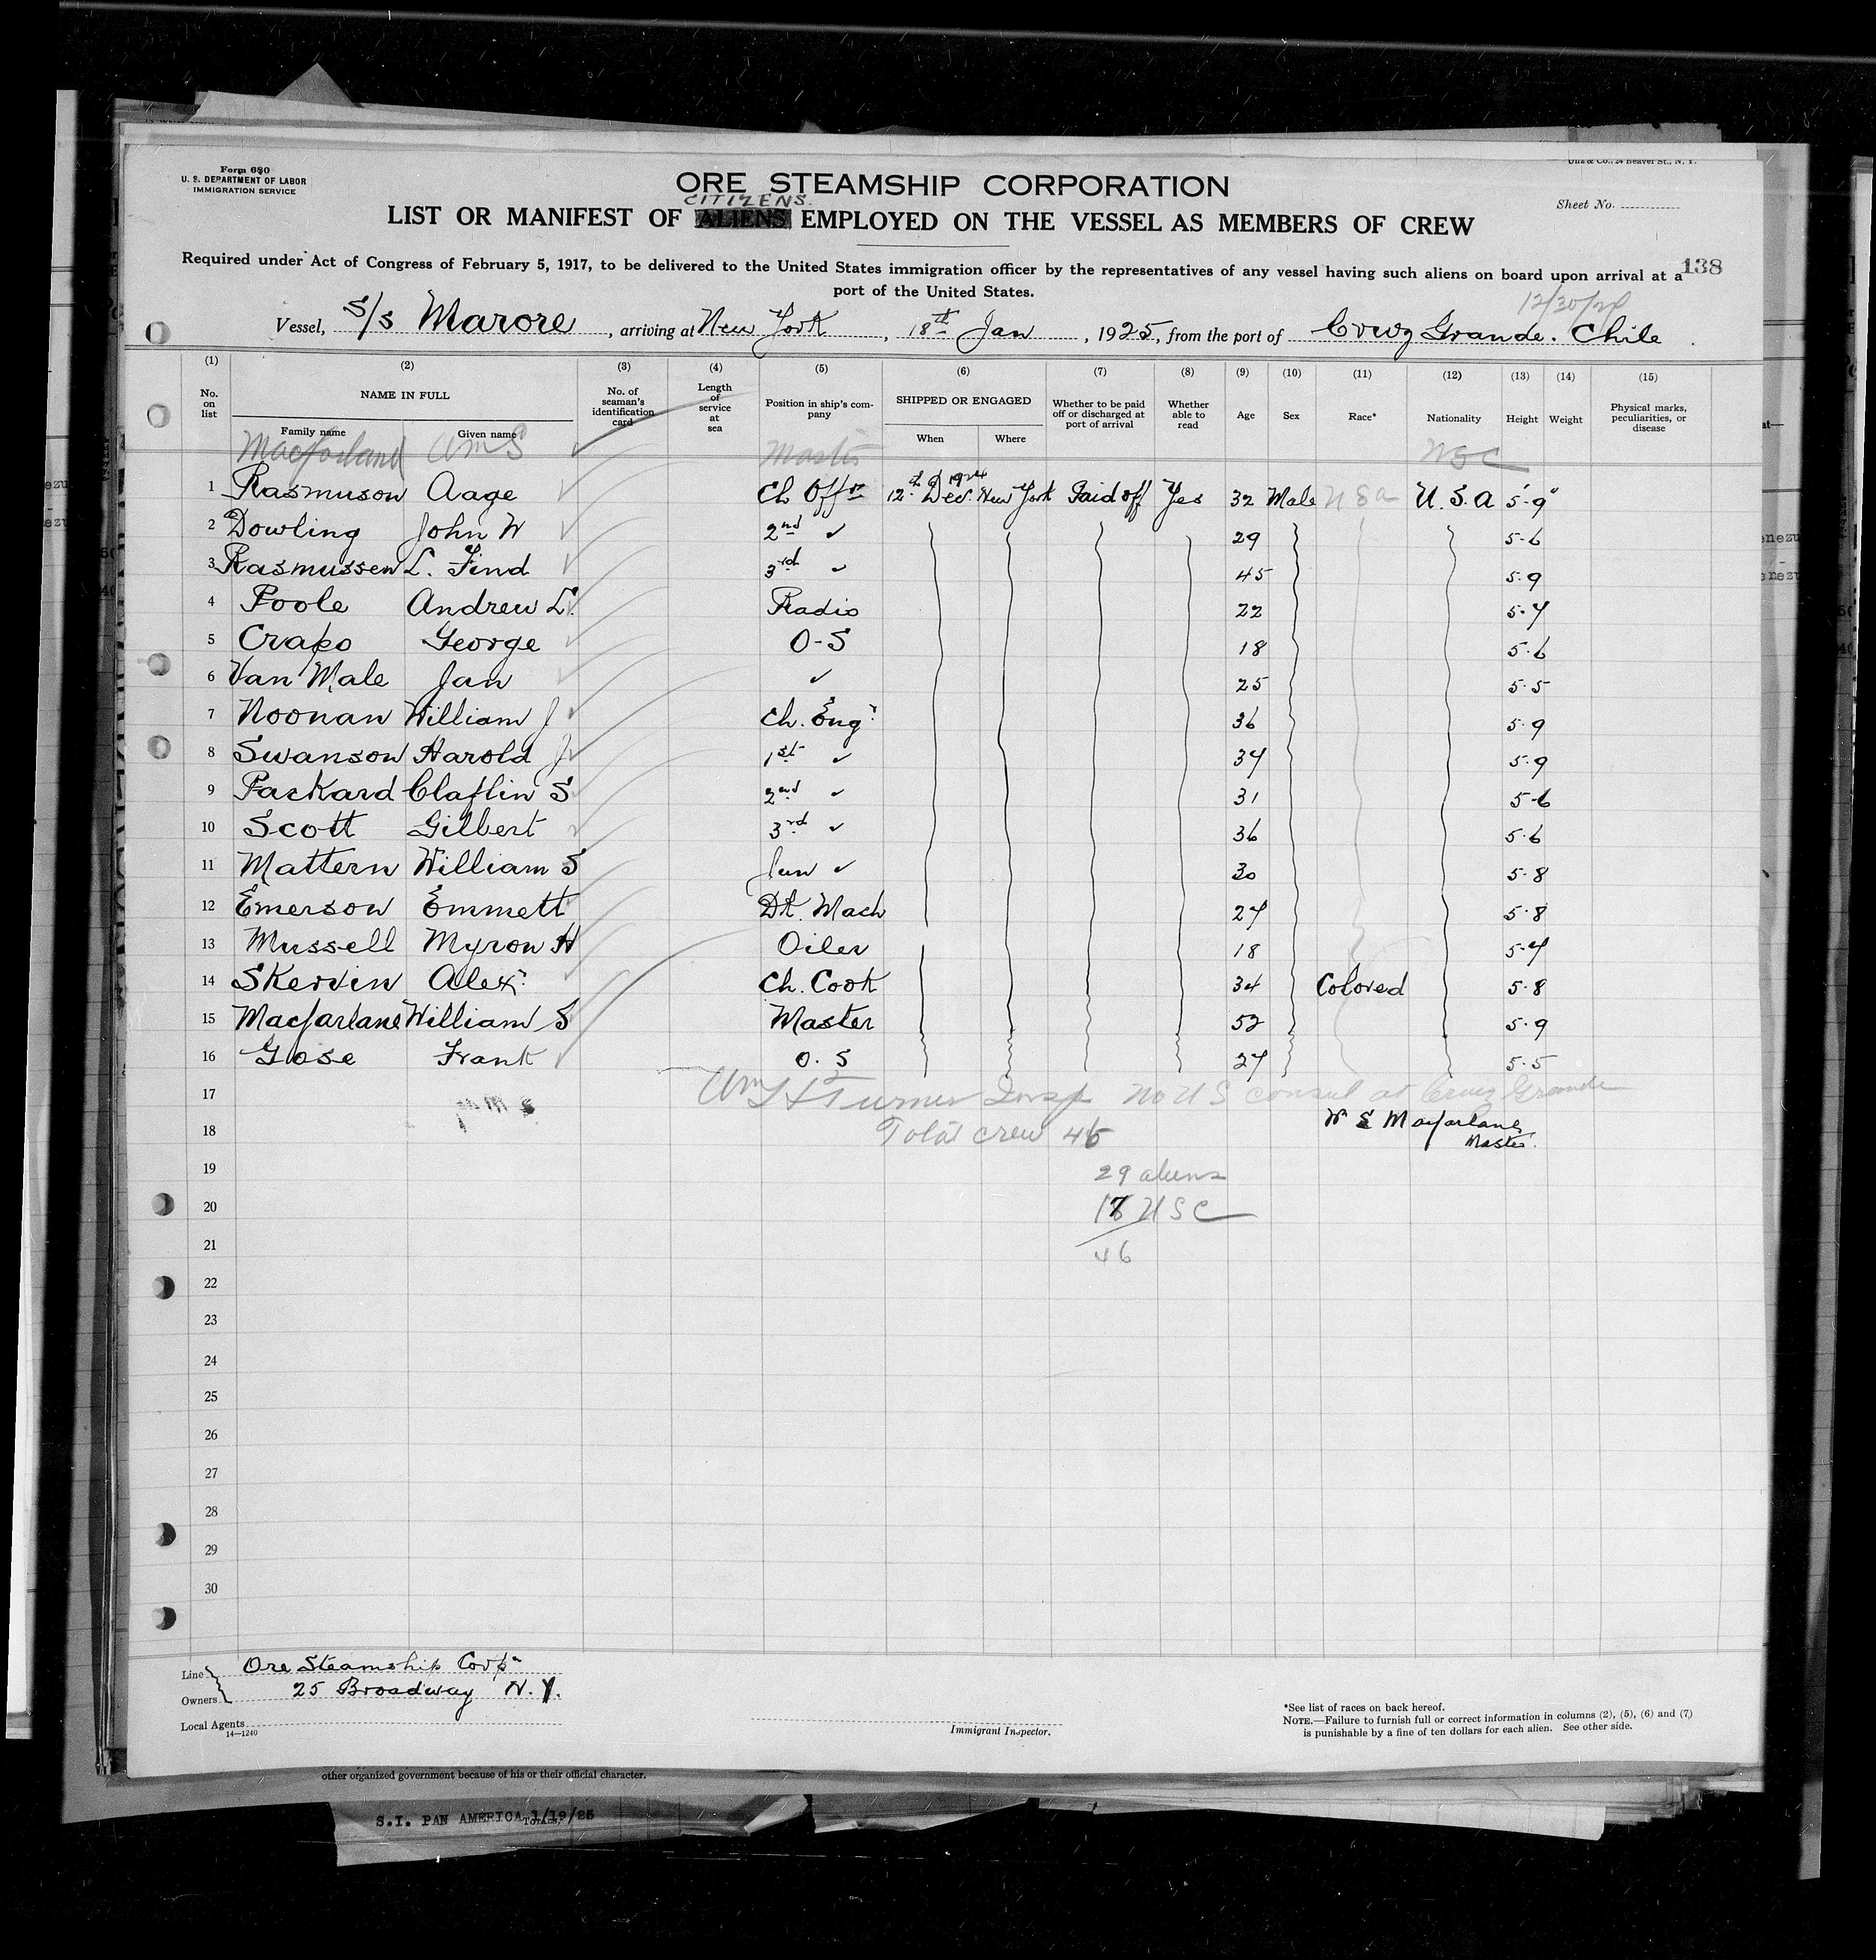 Form 680
U. S. DEPARTMENT OF LABOR
IMMIGRATION SERVICE
Unz & Co., 24 Beaver St., N. Y.
ORE STEAMSHIP CORPORATION
CITIZENS.
LIST OR MANIFEST OF ALIENS EMPLOYED ON THE VESSEL AS MEMBERS OF CREW
Sheet No.
Required under Act of Congress of February 5, 1917, to be delivered to the United States immigration officer by the representatives of any vessel having such aliens on board upon arrival at a
port of the United States.
138
12/30/24
Vessel, S/S Marore, arriving at New York, 18th Jan, 1925, from the port of Cruz Grande. Chile
(1) (2) (3) (4) (5) (6) (7) (8) (9) (10) (11) (12) (13) (14) (15)
No. on list NAME IN FULL Family name Given name No. of seaman's identification card Length of service at sea Position in ship's company SHIPPED OR ENGAGED When Where Whether to be paid off or discharged at port of arrival Whether able to read Age Sex Race* Nationality Height Weight Physical marks, peculiarities, or disease
Macfarland Wm S ✓ Master USC
1 Rasmuson Aage ✓ Ch Offr 12th Dec. 1924 New York Paid off Yes 32 Male USa U.S.A 5'-9"
2 Dowling John W ✓ 2nd ✓ 29 5-6
3 Rasmussen L. Find ✓ 3rd ✓ 45 5-9
4 Poole Andrew L. ✓ Radio 22 5-7
5 Crapo George ✓ O-S 18 5-6
6 Van Male Jan ✓ ✓ 25 5-5
7 Noonan William J ✓ Ch. Engr 36 5-9
8 Swanson Harold J ✓ 1st ✓ 34 5-9
9 Packard Claflin S ✓ 2nd ✓ 31 5-6
10 Scott Gilbert ✓ 3rd ✓ 36 5-6
11 Mattern William S Jun ✓ 30 5-8
12 Emerson Emmett Dk. Mach 27 5-8
13 Mussell Myron H Oiler 18 5-7
14 Skervin Alex. ✓ Ch. Cook 34 Colored 5-8
15 Macfarlane William S Master 52 5-9
16 Gose Frank ✓ O. S 27 5-5
17 Wm H Turner Insp No US consul at Cruz Grande
W S Macfarlane
18 Total crew 46
Master.
19 29 aliens
20 17 USC
21 46
22
23
24
25
26
27
28
29
30
Line Ore Steamship Corpn
Owners 25 Broadway N.Y.
Local Agents
14—1240
Immigrant Inspector.
*See list of races on back hereof.
NOTE.—Failure to furnish full or correct information in columns (2), (5), (6) and (7)
is punishable by a fine of ten dollars for each alien. See other side.
other organized government because of his or their official character.
S.I. PAN AMERICA 1/19/25